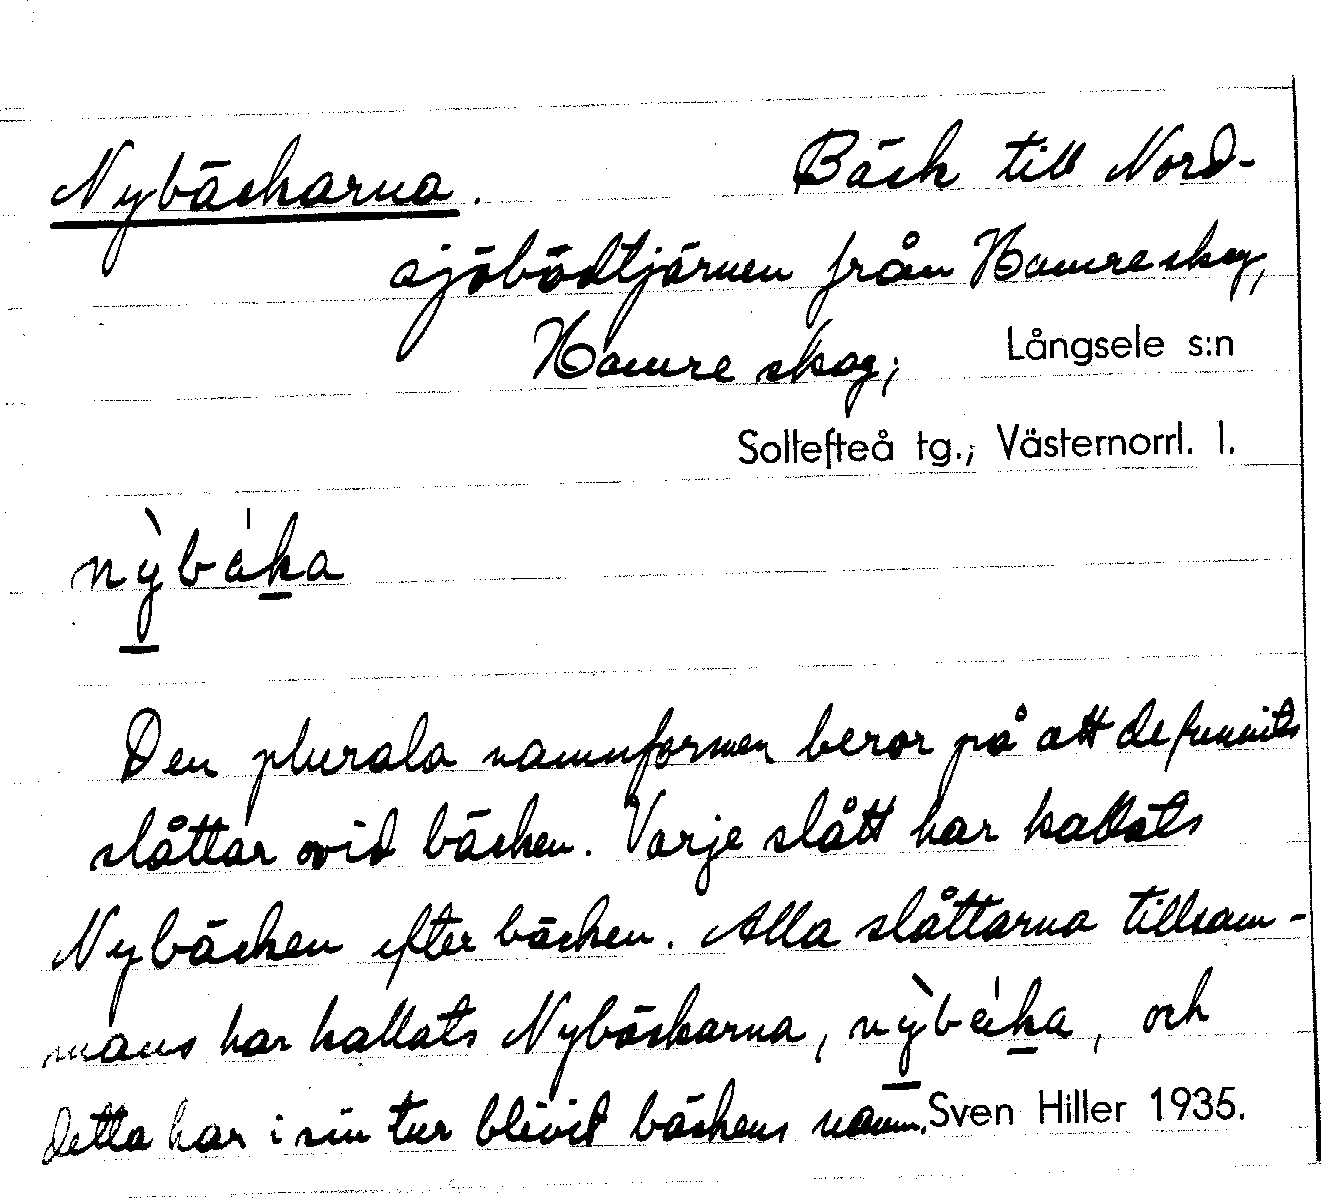 Nybäckarna. Bäck till Nord-
sjöbödtjärnen från Hamreskog,
Hamre skog; Långsele s:n
Sollefteå tg.; Västernorrl. l.
nỳbáka
Den plurala namnformen beror på att de funnits
slåttar vid bäcken. Varje slått har kallats
Nybäcken efter bäcken. Alla slåttarna tillsam-
mans har kallats Nybäckarna, nỳbáka, och
detta har i sin tur blivit bäckens namn. Sven Hiller 1935.